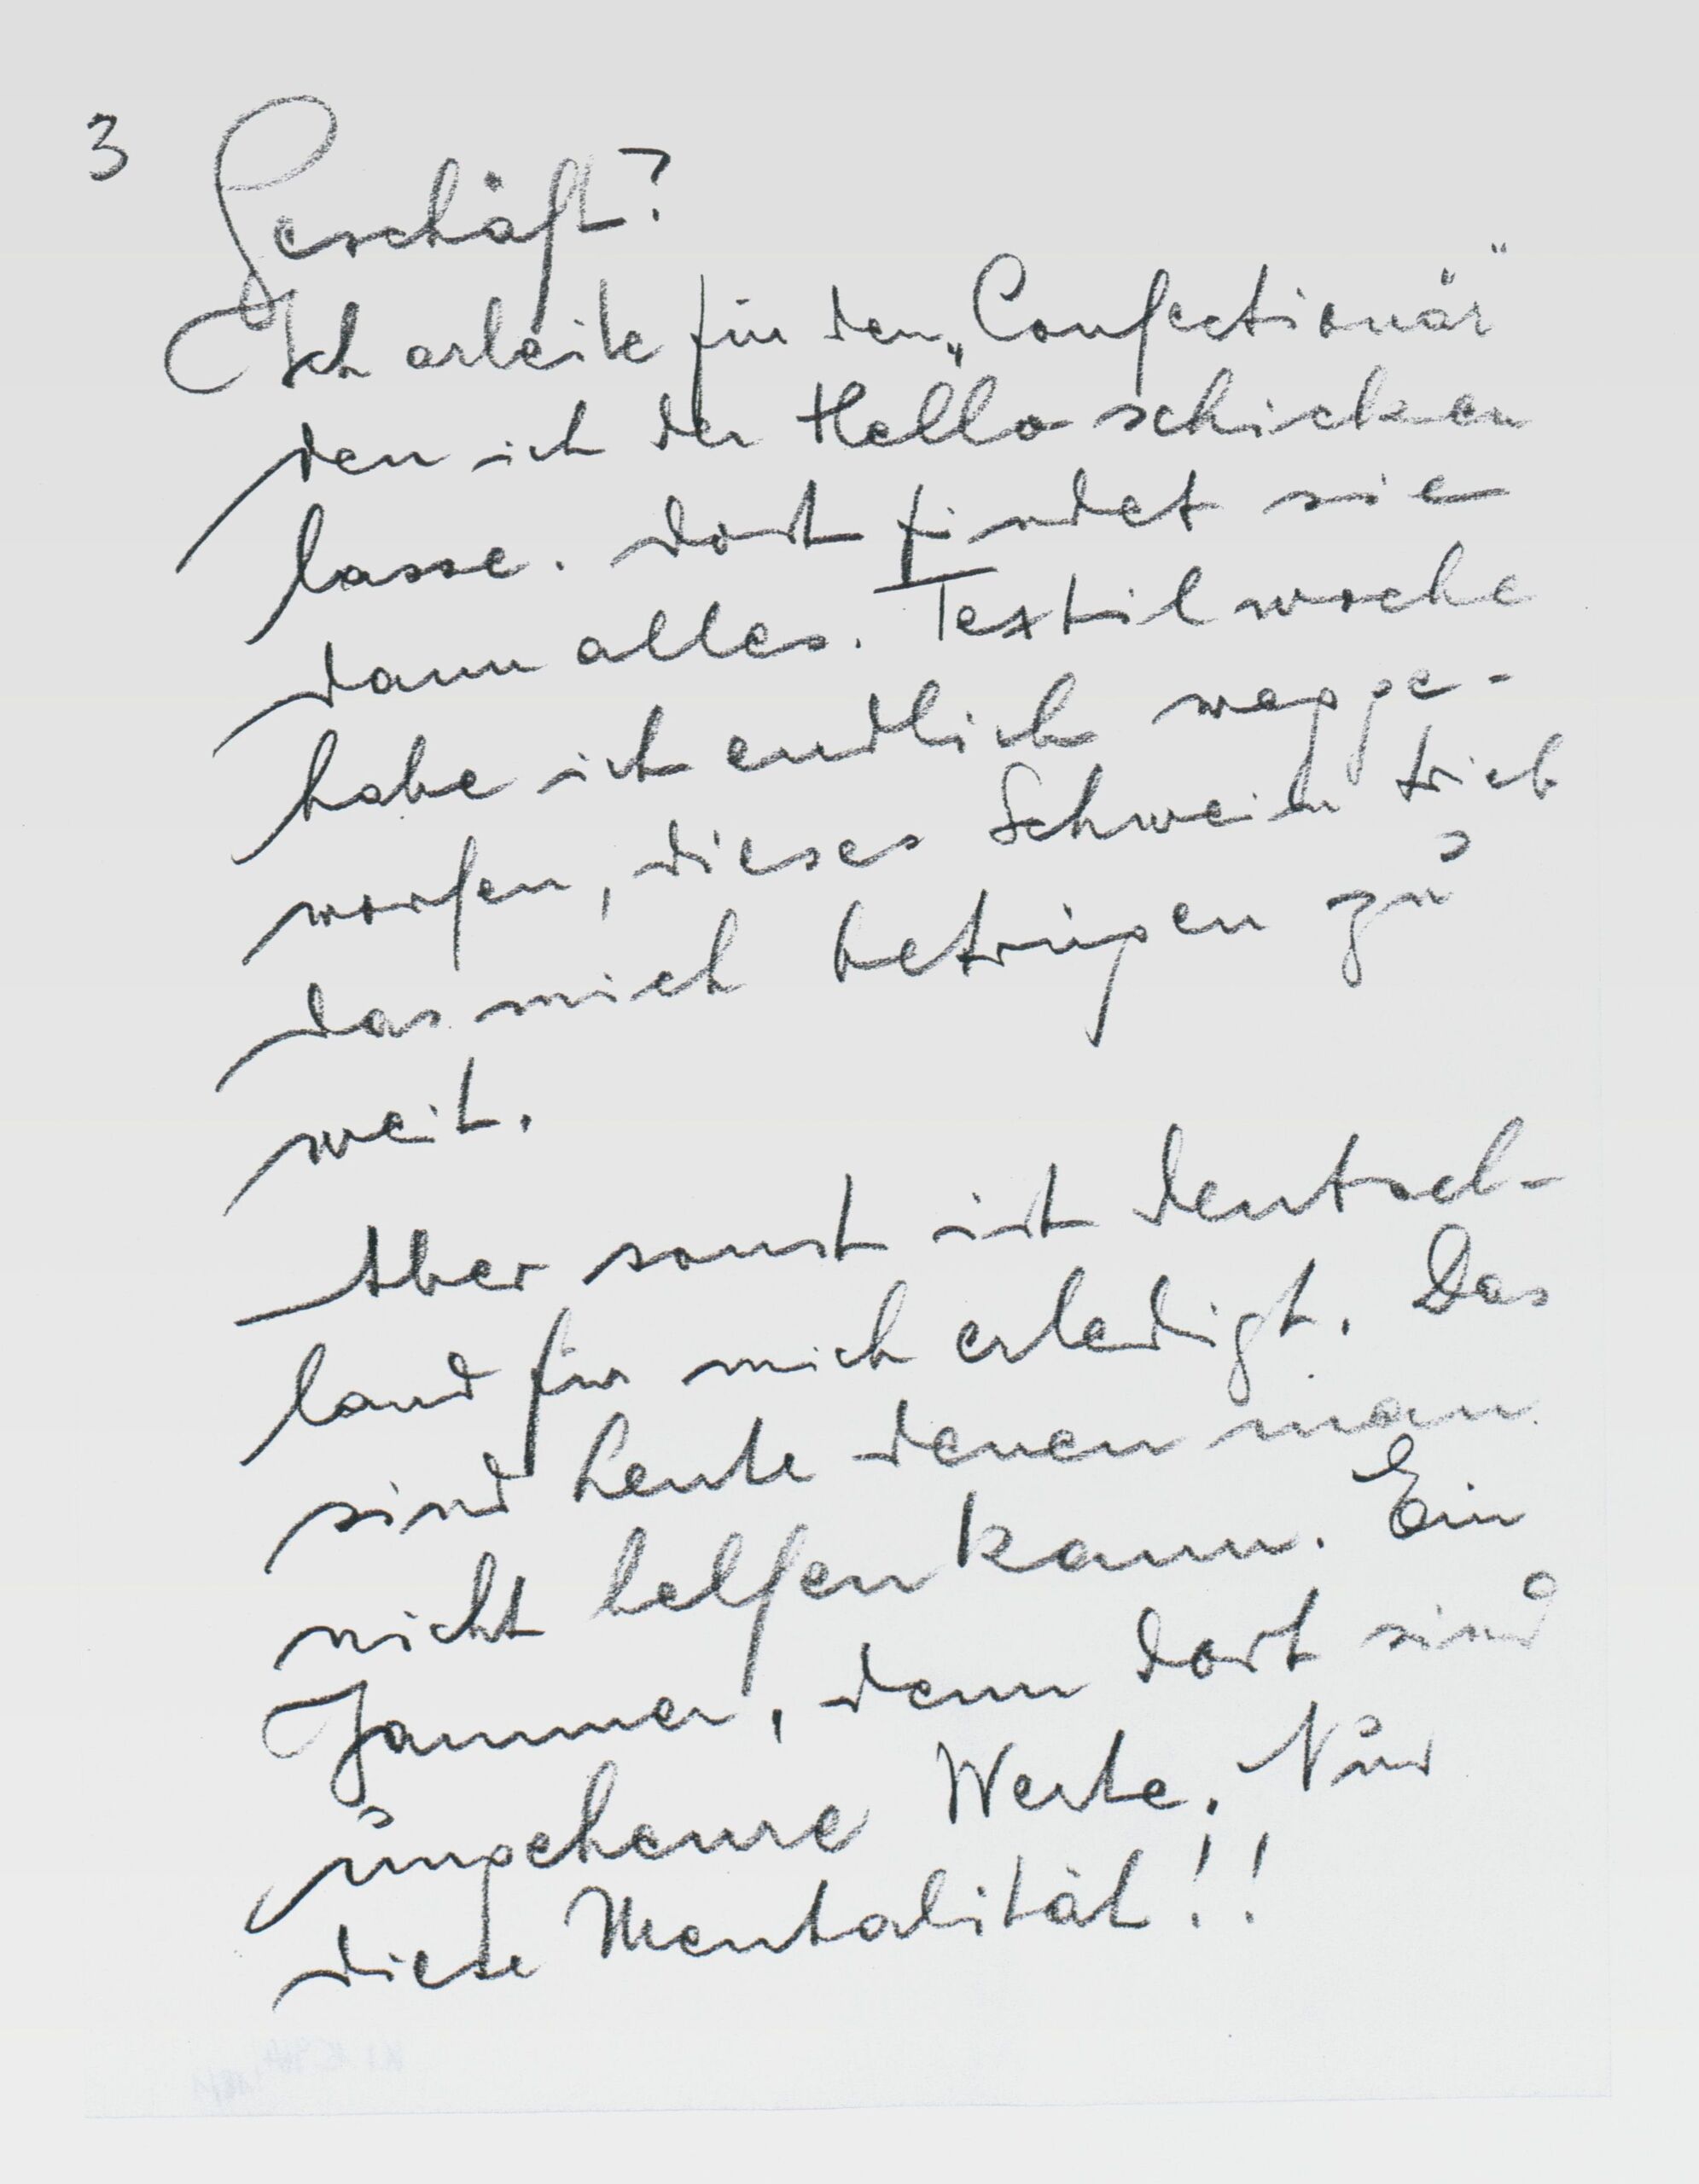 3
Geschäft?
Ich arbeite für den „Confectionär"
den ich der Hello schicken
lasse. dort findet sie
dann alles. Textilwoche
habe ich endlich wegge-
worfen, dieses Schwein trieb
das mich betrügen zu
weit.
Aber sonst ist deutsch-
land für mich erledigt. Das
sind heute denen man
nicht helfen kann. Ein
Jammer, denn dort sind
ungeheure Werte. Nur
diese Mentalität!!